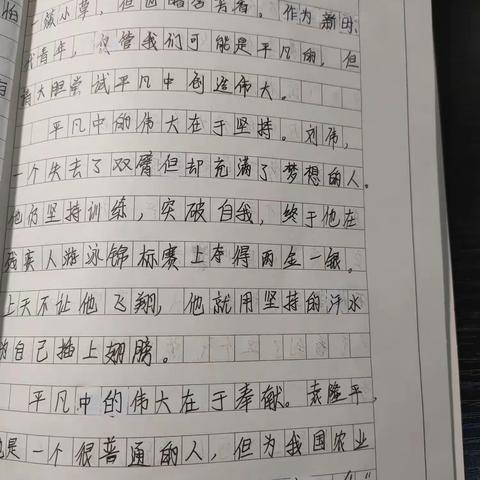 一簇小草，但
作为新时
我青年，尽管我们可能是平凡的，但
着大胆尝试平凡中创造伟大。
平凡中的伟大在于坚持。刘伟，
一个失去了双臂但却充满了梦想的人。
他仍坚持训练，突破自我，终于他在
残疾人游泳锦标赛上夺得两金一银。
上天不让他飞翔，他就用坚持的汗水
为自己插上翅膀。
平凡中的伟大在于奉献。袁隆平，
他是一个很普通的人，但为我国农业